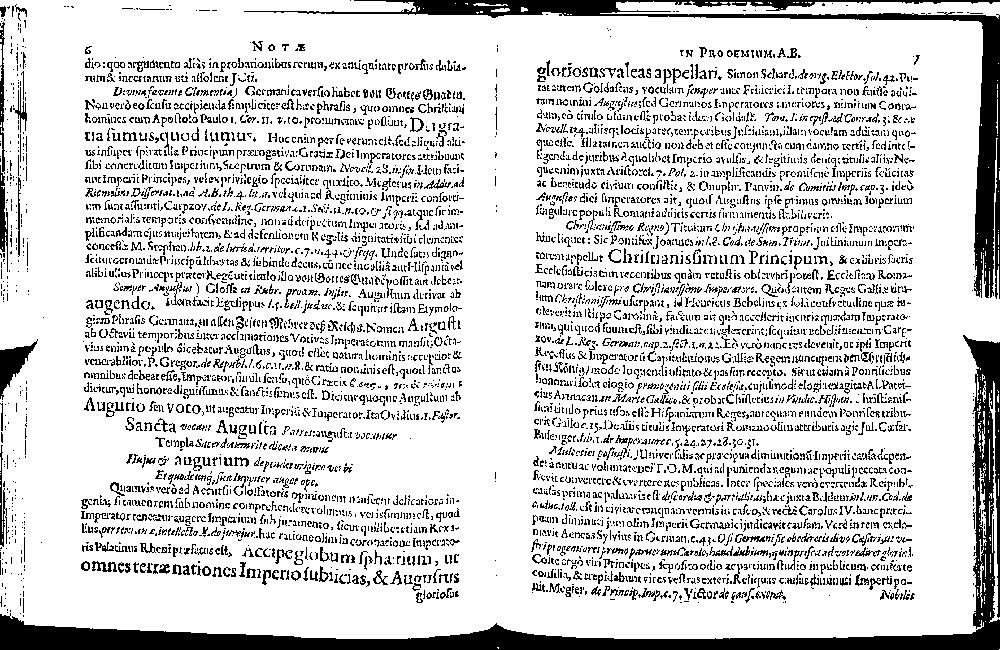 6 NOTÆ
dio: quo argumento aliàs in probationibus rerum, ex antiquitate prorsus dubia-
rum & incertarum uti assolent
Divina favente Clementia) Germanica versio habet von Gottes Gnaden.
Non verò eo sensu accipienda simpliciter est hæc phrasis, quo omnes Christiani
homines cum Apostolo Paulo 1. Cor. 11. v. 10. pronunciare possunt, Dei gra-
tia sumus, quod sumus. Hoc enim per se verum est, sed aliquid alti-
us insuper spirat illa Principum prærogativa: Gratiæ Dei Imperatores attribuunt
sibi concenditum Imperium, Sceptrum & Coronam. Novell. 28. in fin. Idem faci-
unt Imperii Principes, vel ex privilegio specialiter quæsito. Meglerus in Addit. ad
Riemelini Dissertat. 1. ad A.B. th. 4. lit. a. vel quia ad Regiminis Imperii consorti-
um sunt assumti, Carpzov. de L. Reg. German. c. 1. Sect. 11. n. 10. & seqq. atque sic im-
memorialis temporis consuetudine, non ad despectum Imperatoris, sed ad am-
plificandam ejus majestatem, & ad defensionem Regalis dignitatis sibi clementer
concessæ M. Stephan. lib. 2. de Jurisd. territor. c. 7. n. 44. & seqq. Unde satis digno-
scitur Germaniæ Principum libertas & subinde decus, cùm nec in Gallia aut Hispania vel
alibi ullus Princeps præter Regé uti titulo illo von Gottes Gnad possit aut debeat.
Semper Augustus) Glossa in Rubr. proœm. Instit. Augustum derivat ab
augendo. Idem facit Egesippus l. 5. bell. judaic. & sequitur istam Etymolo-
giam Phrasis Germana, zu allen Zeiten Mehrer deß Reichs. Nomen Augusti
ab Octavii temporibus inter acclamationes Votivas Imperatorum mansit, Octa-
vius enim à populo dicebatur Augustus, quod esset natura hominis acceptior &
venerabilior. P. Gregor. de Republ. l. 6. c. 11. n. 8. & ratio nominis est, quod sanctus
omnibus debeat esse, Imperator, simili sensu, quo Græcis
dicitur, qui honore dignissimus & sanctissimus est. Dicitur quoque Augustum ab
Augurio seu voto, ut augeatur Imperiũ & Imperator. Ita Ovidius. 1. Fastor.
Sancta vocant Augusta Patres: augusta vocantur
Templa Sacerdotum ritè dicata manu
Hujus & augurium dependet origine verbi
Et quodcunque sua Jupiter auget ope.
Quamvis verò ad Accursii Glossatoris opinionem nauseent delicatiora in-
genia; si tamen rem sub nomine comprehendere volumus, verissimum est, quod
Imperator teneatur augere Imperium sub juramento, sicut quilibet etiam Rex
hac ratione olim in coronatione Imperato-
ris Palatinus Rheni præfatus est, Accipe globum sphæricum, ut
omnes terræ nationes Imperio subiicias, & Augustus
gloriosus
IN PROOEMIUM. A.B. 7
gloriosus valeas appellari. Simon Schard. de orig. Elector. fol. 42. Pu-
tat autem Goldastus, voculam semper ante Friderici I. tempora non fuisse addi-
tam nomini Augustus, sed Germanos Imperatores anteriores, nimirum Conra-
dum, eo titulo usum esse probat idem Goldast. Tom. 1. in epist. ad Conrad. 3. & ex
Novell. 134. aliisq; locis patet, temporibus Justiniani, illam voculam additam quo-
que esse. Illa tamen auctio non debet esse conjuncta cum damno tertii, sed intel-
ligenda de juribus à quolibet Imperio avulsis, & legitimis denique titulis aliis: Ne-
que enim juxta Aristotel. 7. Pol. 2. in amplificandis promiscuè Imperiis felicitas
ac beatitudo civium consistit, & Onuphr. Panvin. de Comitiis Imp. cap. 3. ideò
Augustos dici Imperatores ait, quod Augustus ipse primus omnium Imperium
singulare populi Romani adjectis certis firmamentis stabiliverit.
Christianissimo Regno) Titulum Christianissimi proprium esse Imperatorum
hinc liquet: Sic Pontifex Joannes in l. 8. Cod. de Sum. Trinit. Justinianum Impera-
torem appellat Christianissimum Principum, & ex libris sacris
Ecclesiasticis tam recentibus quàm vetustis observari potest, Ecclesiam Roma-
nam orare solere pro Christianissimo Imperatore. Quod autem Reges Galliæ titu-
lum Christianissimi usurpant, id Henricus Bebelius ex sola consvetudine quæ in-
oleverit in stirpe Carolina, factum ait quò accesserit incuria quædam Imperato-
rum, qui quod suum est, sibi vindicare neglexerint; sequitur nobiliter autem Carp-
zov. de L. Reg. German. cap. 2. sect. 1. n. 22. Eò verò nunc res devenit, ut ipsi Imperii
Regestus & Imperatoru Capitulationes Galliæ Regem nuncupem den Christlich-
sten König modo loquendi usitato & passim recepto. Sic ut etiam à Pontificibus
honorari solet elogio primogeniti filii Ecclesiæ, cujusmodi elogii exagitat Al. Patri-
cius Armacan. in Marte Gallico, & probat Chifletius in Vindic. Hispan. Christianis-
simi titulo prius usos esse Hispaniarum Reges, antequam eundem Pontifices tribu-
erit Gallo c. 15. De aliis titulis Imperatori Romano olim attributis agit Jul. Cæsar.
Bulenger. lib. 2. de Imperatore c. 5. 24. 27. 28. 30. 31.
Multoties possusti.) Universalis ac præcipua diminutionis Imperii causa depen-
det à nutu ac voluntate Dei T.O.M. qui ad punienda regum ac populi peccata con-
suevit convertere & evertere res publicas. Inter speciales verò evertendæ Reipubl.
causas prima ac palmaris est discordia & partialitas; hæc juxta Baldum in l. un. Cod. de
caduc. toll. est in civitate tanquam vermis in caseo, & rectè Carolus IV. hanc præci-
puam diminuti jam olim Imperii Germanici judicavit causam. Verè in rem excla-
mavit Aeneas Sylvius in German. c. 43. O si Germaniæ obedieritis divo Cæsari, ut ve-
stri progenitores primo parueruni Carolo, haud dubium, quin prisca ad vos rediret gloria.
Colite ergò viri Principes, seposito odio ac partium studio in publicum, conferte
consilia, & trepidabunt vires vestras exteri. Reliquas causas diminuti Imperii po-
suit. Megler. de Princip. Imp. c. 7. Victor de caus. event.
Nobiles